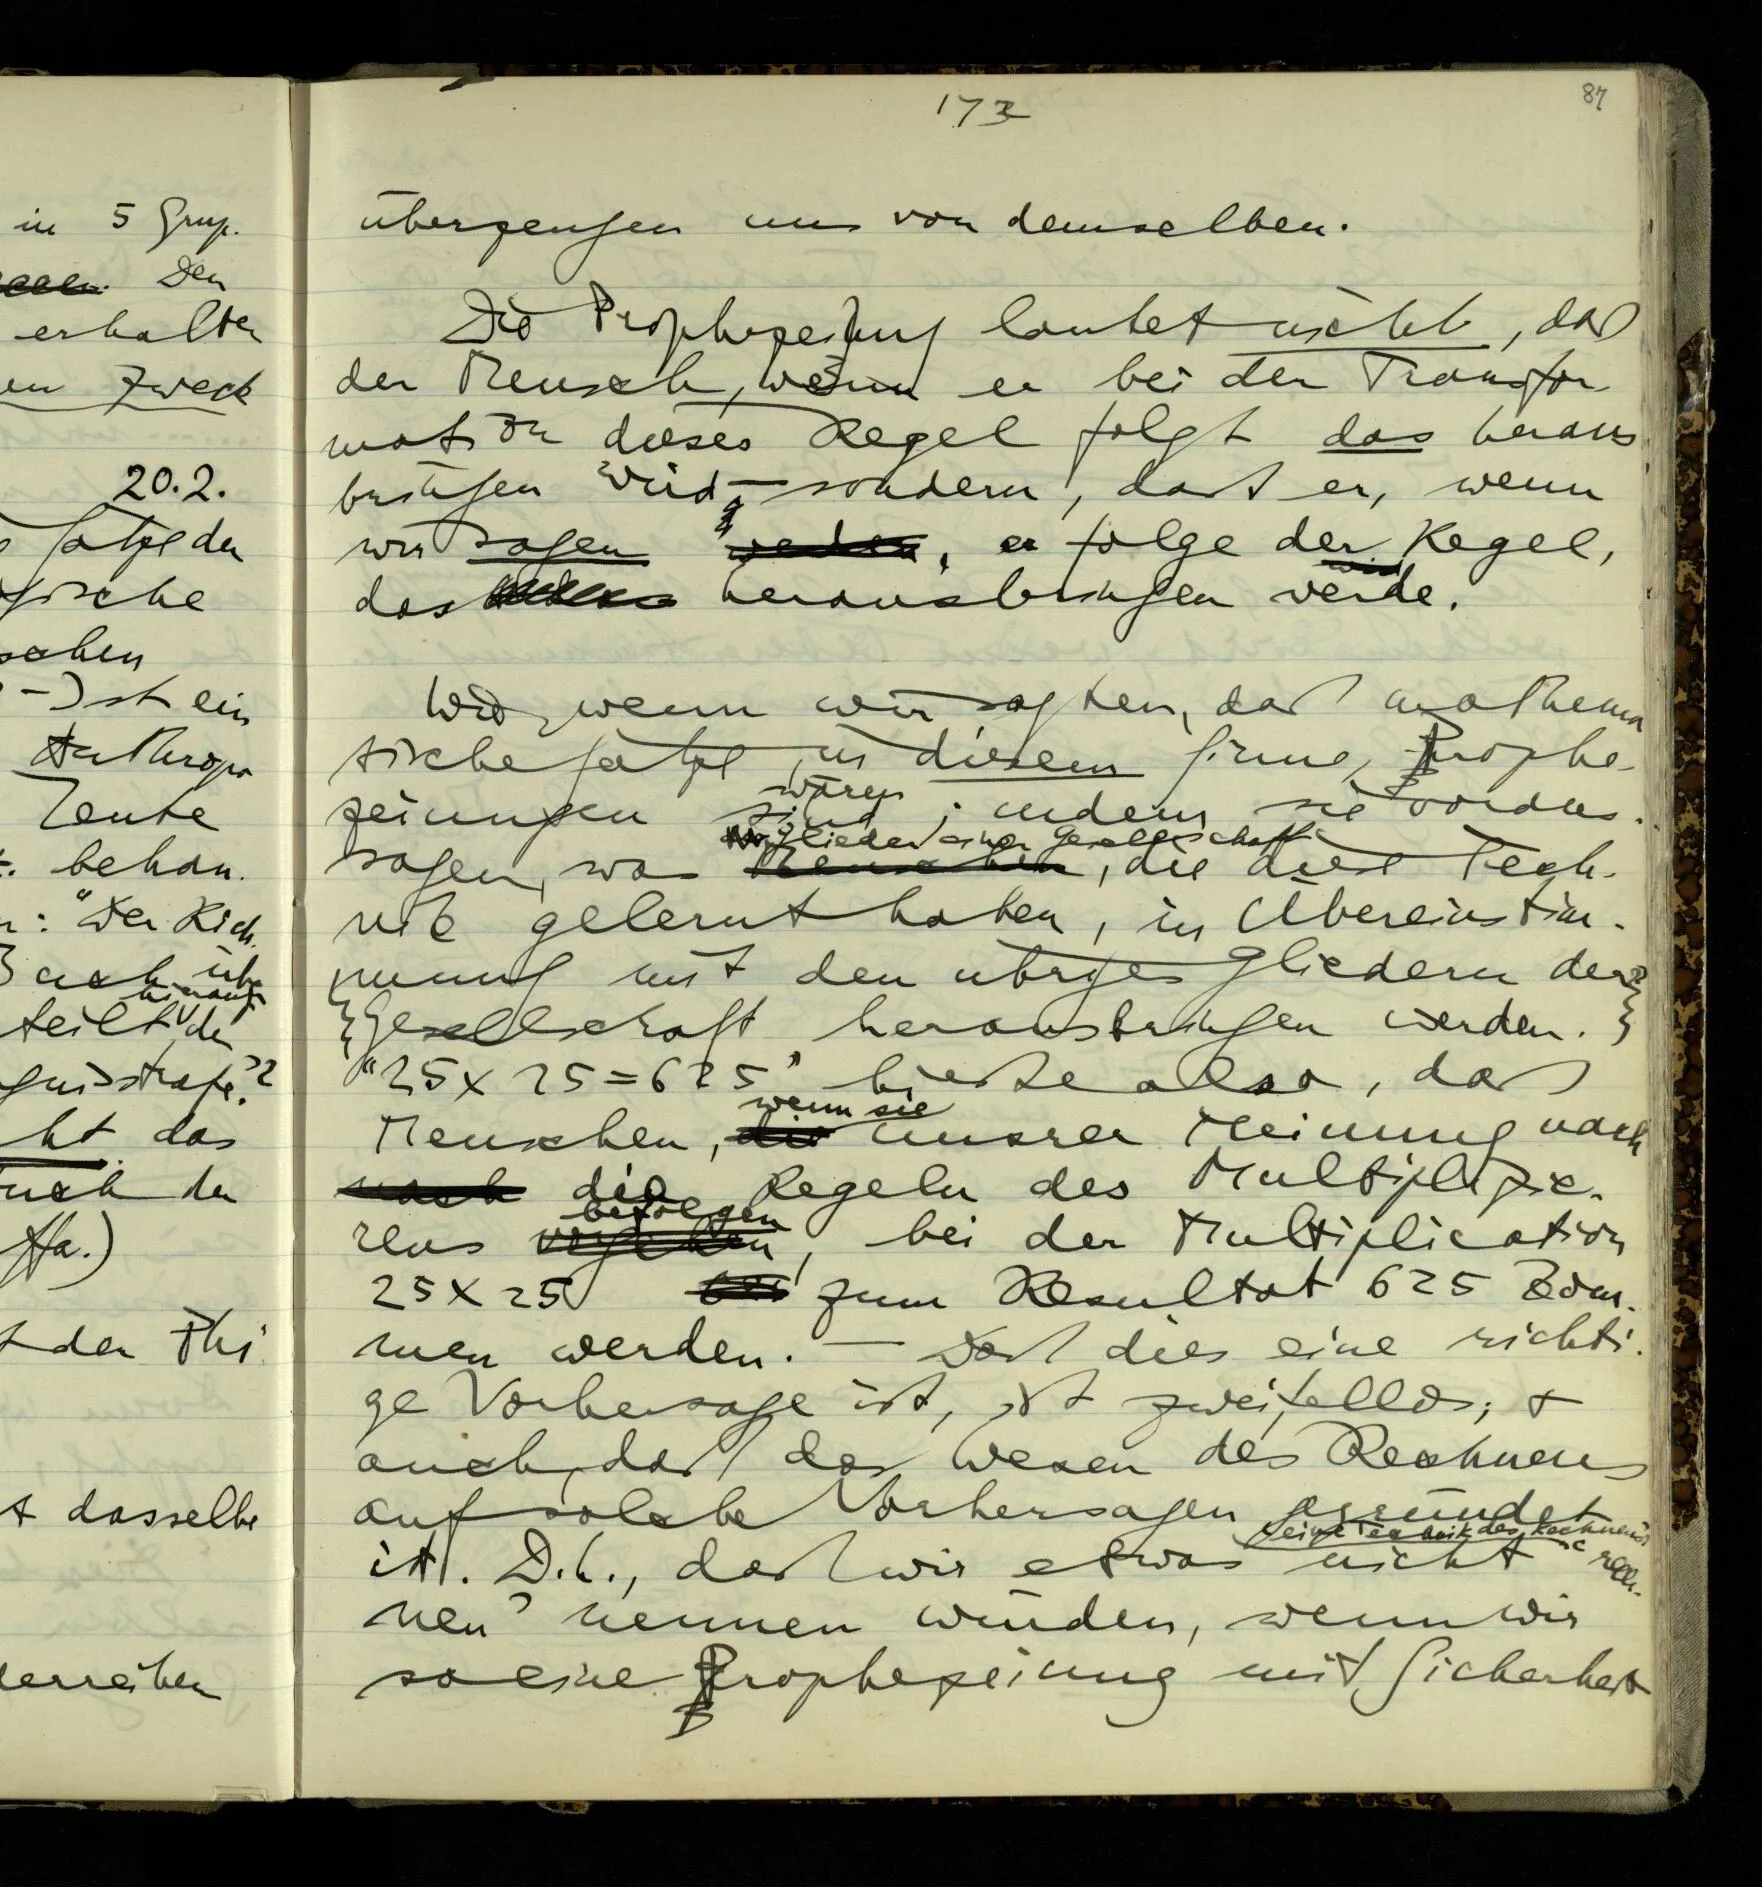 in 5 Grup.
Den
erhalten
en Zweck
20.2.
Sätze der
gische
schen
–) ist ein
Anthropo
Leute
behan.
: "Der Rich.
auch über
hinaus
teilt der
gnisstrafe.?
ht das
der
Ha.)
t der Phi
t dasselbe
erreihen
173
87
überzeugen uns von demselben.
Die Prophezeiung lautet nicht, daß
der Mensch, wenn er bei der Transfor
mation dieser Regel folgt das heraus
bringen wird – sondern, daß er, wenn
wir sagen werden, er folge der Regel,
das herausbringen werde.
Wie, wenn wir sagten, daß mathema
tische Sätze in diesem Sinne Prophe-
waren
zeiungen sind; indem sie voraus-
Glieder einer Gesellschaft
sagen, was Menschen, die diese Tech-
nik gelernt haben, in Übereinstim-
mung mit den übrigen Gliedern der
Gesellschaft herausbringen werden.
"25 x 25 = 625" hieße also, daß
wenn sie
Menschen, die unsrer Meinung nach
nach die Regeln des Multiplizie-
befolgen
rens vorgehen, bei der Multiplication
25 x 25 bei zum Resultat 625 kom-
men werden. – Daß dies eine richti-
ge Vorhersage ist, ist zweifellos; &
auch, daß das Wesen des Rechnens
auf solche Vorhersagen gegründet
eine Technik des Rechnens
ist. D.h., daß wir etwas nicht 'rech-
nen' nennen würden, wenn wir
so eine Prophezeiung nicht mit Sicherheit